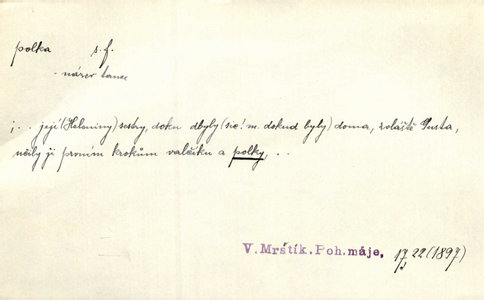 polka s. f.
- název tance
; . . její (Heleniny) sestry, doku dbyly (sic! m. dokud byly) doma, zvláště Gusta,
učily ji prvním krokům valčíku a polky, . .
V. Mrštík. Poh. máje, 22 (1897)